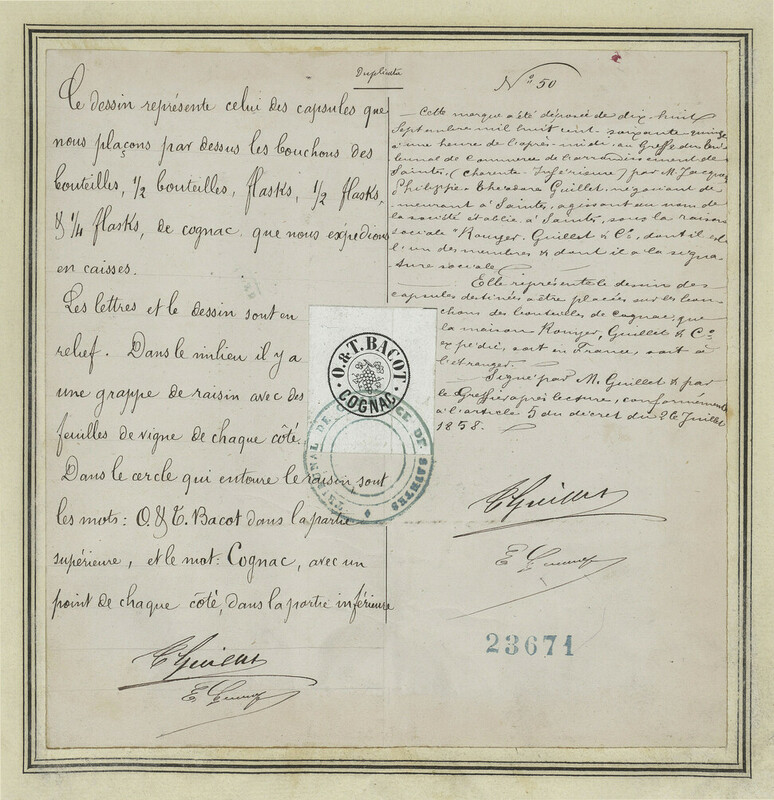 Duplicata
Ce dessin représente celui des capsules que
nous plaçons par dessus les bouchons des
bouteilles, 1/2 bouteilles, flasks, 1/2 flasks,
& 1/4 flasks, de cognac que nous expédions
en caisses.
Les lettres et le dessin sont en
relief. Dans le milieu il y a
une grappe de raisin avec des
feuilles de vigne de chaque côté.
Dans le cercle qui entoure le raisin sont
les mots: O. & T. Bacot dans la partie
supérieure, et le mot: Cognac, avec un
point de chaque côté, dans la partie inférieure
O. & T. BACOT
COGNAC
TRIBUNAL DE COMMERCE DE SAINTES
No 50
Cette marque a été déposée le dix-huit
Septembre mil huit cent soixante quinze
à une heure de l'après-midi, au Greffe du Tri
bunal de Commerce de l'arrondissement de
Saintes, (Charente-Inférieure) par M. Jacques
Philippe Théodore Guillet, négociant de
meurant à Saintes, agissant au nom de
la société établie à Saintes, sous la raison
sociale "Rouyer, Guillet & Cie, dont il est
l'un des membres & dont il a la signa
ture sociale.
Elle représente le dessin des
capsules destinées à être placées sur les bou
chons des bouteilles de cognac, que
la maison Rouyer, Guillet & Co
expédie, soit en France, soit à
l'étranger.
Signé par M. Guillet & par
le Greffier après lecture, conformément
à l'article 5 du décret du 26 Juillet
1858.
23671